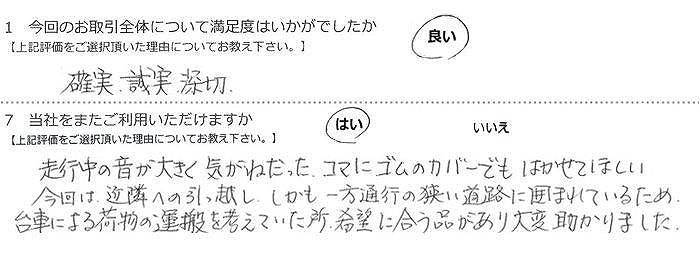 1 今回のお取引全体について満足度はいかがでしたか 良い
【上記評価をご選択頂いた理由についてお教え下さい。】
確実.誠実.深切.
7 当社をまたご利用いただけますか はい いいえ
【上記評価をご選択頂いた理由についてお教え下さい。】
走行中の音が大きく気がねだった.コマにゴムのカバーでもはかせてほしい
今回は.近隣への引っ越し.しかも一方通行の狭い道路に囲まれているため.
台車による荷物の運搬を考えていた所.希望に合う品があり大変助かりました.